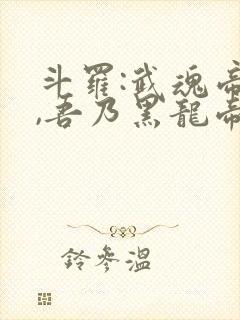 斗羅:武魂帝
,吾乃黑龍帝
鈴參溫